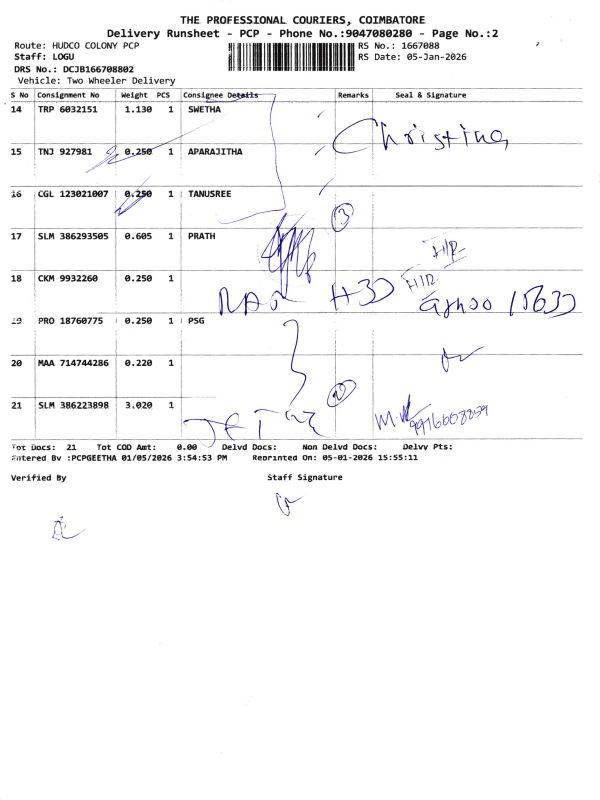 THE PROFESSIONAL COURIERS, COIMBATORE
Delivery Runsheet - PCP - Phone No.:9047080280 - Page No.:2
Route: HUDCO COLONY PCP RS No.: 1667088
Staff: LOGU RS Date: 05-Jan-2026
DRS No.: DCJB166708802
Vehicle: Two Wheeler Delivery
S No Consignment No Weight PCS Consignee Details Remarks Seal & Signature
14 TRP 6032151 1.130 1 SWETHA
Christina
15 TNJ 927981 0.250 1 APARAJITHA
16 CGL 123021007 0.250 1 TANUSREE
3
17 SLM 386293505 0.605 1 PRATH
H/R
18 CKM 9932260 0.250 1
H/R
19 PRO 18760775 0.250 1 PSG
20 MAA 714744286 0.220 1
21 SLM 386223898 3.020 1
Tot Docs: 21 Tot COD Amt: 0.00 Delvd Docs: Non Delvd Docs: Delvy Pts:
Entered By :PCPGEETHA 01/05/2026 3:54:53 PM Reprinted On: 05-01-2026 15:55:11
Verified By Staff Signature